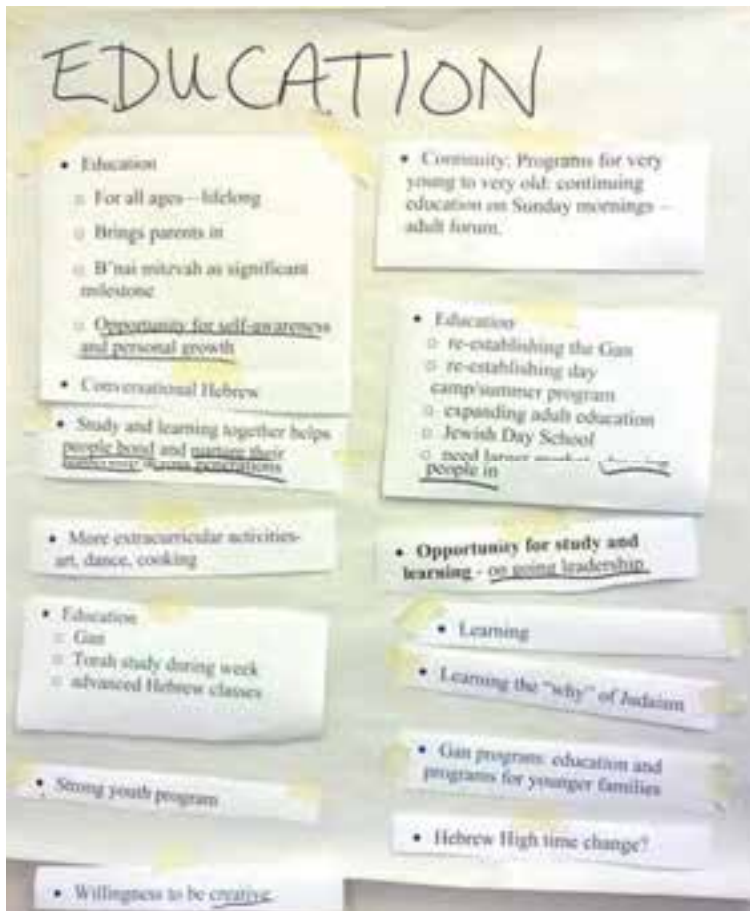 EDUCATION
• Education
○ For all ages – lifelong
○ Brings parents in
○ B'nai mitzvah as significant
milestone
○ Opportunity for self-awareness
and personal growth
• Conversational Hebrew
• Study and learning together helps
people bond and nurture their
across generations
• More extracurricular activities-
art, dance, cooking
• Education
○ Gan
○ Torah study during week
○ advanced Hebrew classes
• Strong youth program
• Willingness to be creative.
• Continuity: Programs for very
young to very old: continuing
education on Sunday mornings –
adult forum.
• Education
○ re-establishing the Gan
○ re-establishing day
camp/summer program
○ expanding adult education
○ Jewish Day School
○ need larger
people in
• Opportunity for study and
learning - on going leadership.
• Learning
• Learning the "why" of Judaism
• Gan program: education and
programs for younger families
• Hebrew High time change?